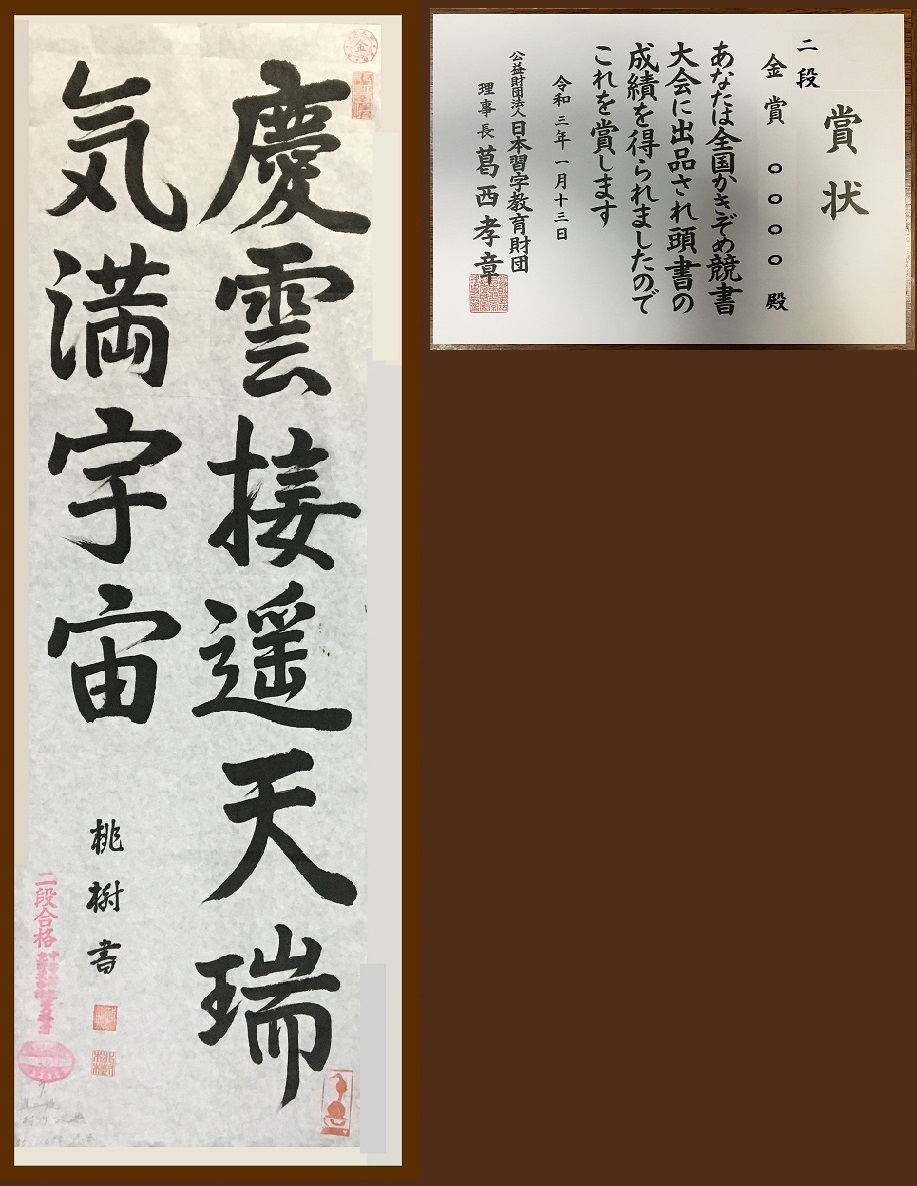 慶雲接遥天瑞
気満宇宙
桃樹書
二段合格
金
賞状
二段
金賞 〇〇〇〇 殿
あなたは全国かきぞめ競書
大会に出品され頭書の
成績を得られましたので
これを賞します
令和三年一月十三日
公益財団法人日本習字教育財団
理事長 葛西孝章